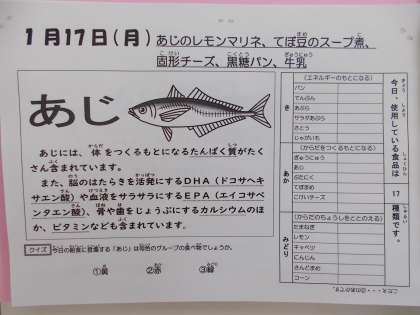 1月17日(月) あじのレモンマリネ、てぼ豆のスープ煮、
固形チーズ、黒糖パン、牛乳
あじ
あじには、体をつくるもとになるたんぱく質がたく
さん含まれています。
また、脳のはたらきを活発にするDHA(ドコサヘキ
サエン酸)や血液をサラサラにするEPA(エイコサペ
ンタエン酸)、骨や歯をじょうぶにするカルシウムのほ
か、ビタミンなども含まれています。
クイズ 今日の給食に登場する「あじ」は何色のグループの食べ物でしょうか。
①黄 ②赤 ③緑
今日、使用している食品は 17 種類です。
き
(エネルギーのもとになる)
パン
でんぷん
あぶら
サラダあぶら
さとう
じゃがいも
あか
(からだをつくるもとになる)
ぎゅうにゅう
あじ
ぶたにく
てぼまめ
こけいチーズ
みどり
(からだのちょうしをととのえる)
たまねぎ
レモン
キャベツ
にんじん
さんどまめ
コーン
こたえ・・・②のあかです。